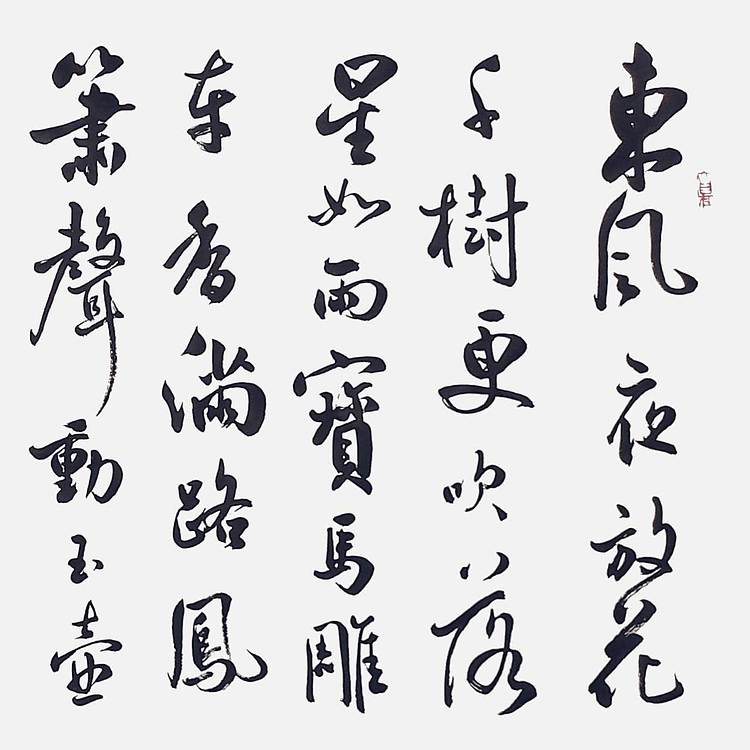 東風夜放花
千樹更吹落
星如雨寶馬雕
車香滿路鳳
簫聲動玉壺